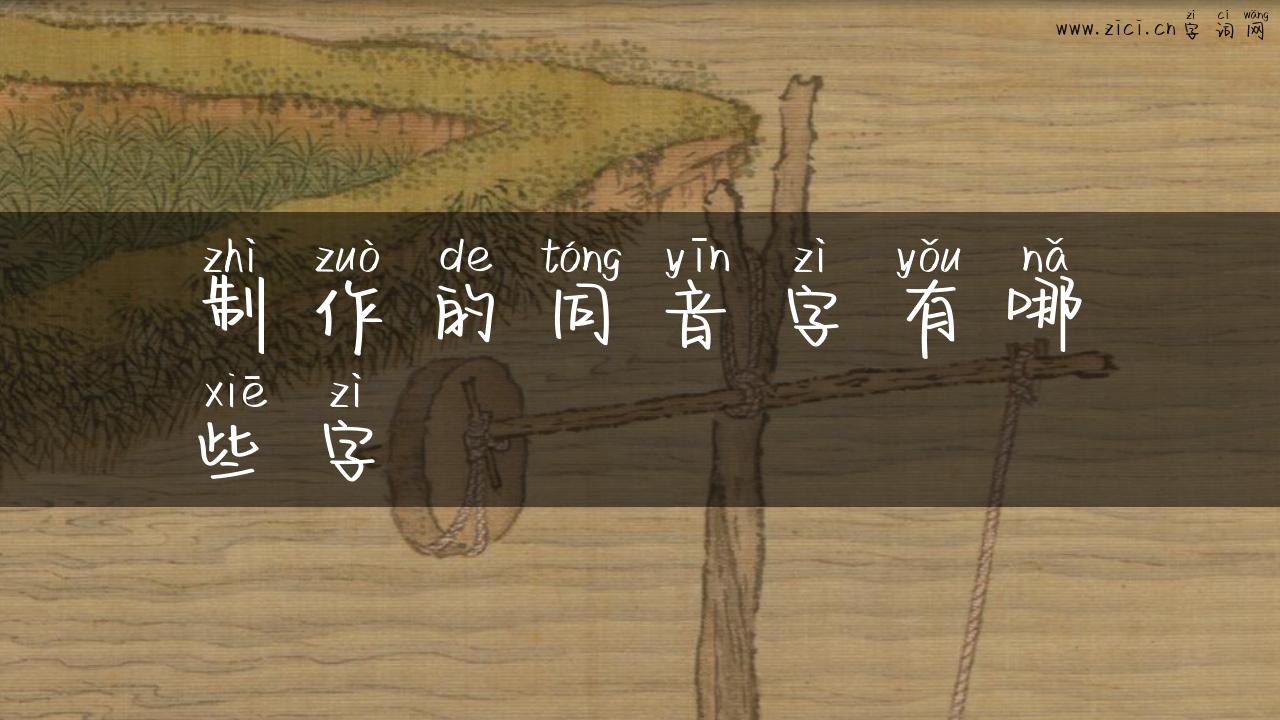 zì cí wǎng
www.zici.cn 字 词 网
zhì zuò de tóng yīn zì yǒu nǎ
制 作 的 同 音 字 有 哪
xiē zì
些 字